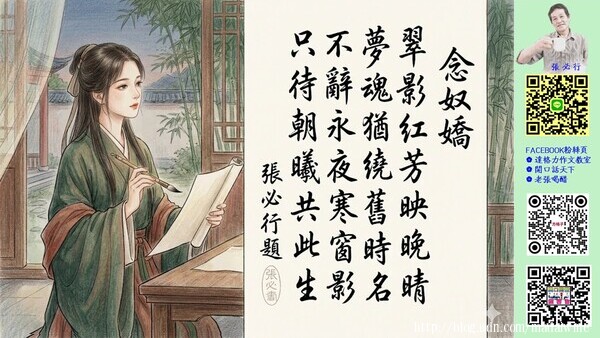 念奴嬌
翠影紅芳映晚晴
夢魂猶繞舊時名
不辭永夜寒窗影
只待朝曦共此生
張必行題
張必行
FACEBOOK粉絲頁
達格力作文教室
開口話天下
老張喝醋